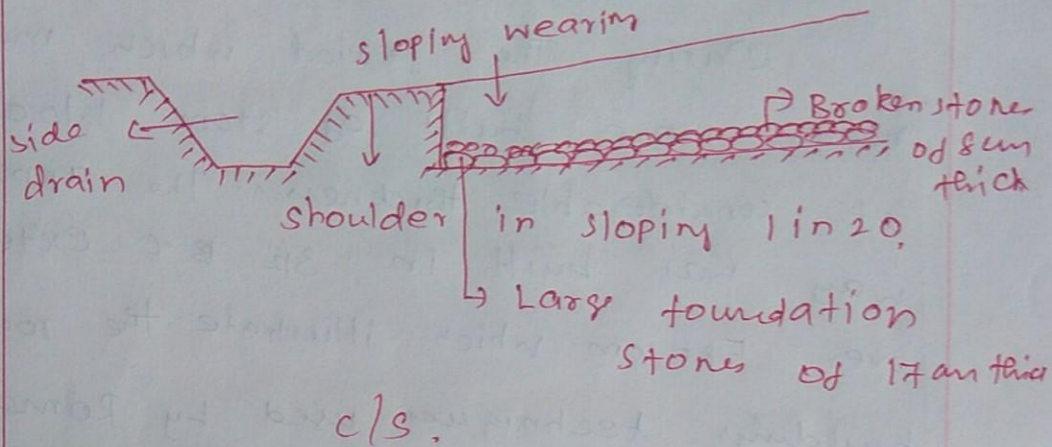 sloping wearing
Broken stones
side
of 8cm
drain
thick
shoulder in sloping 1 in 20.
Large foundation
stones of 17 cm thick
c/s.